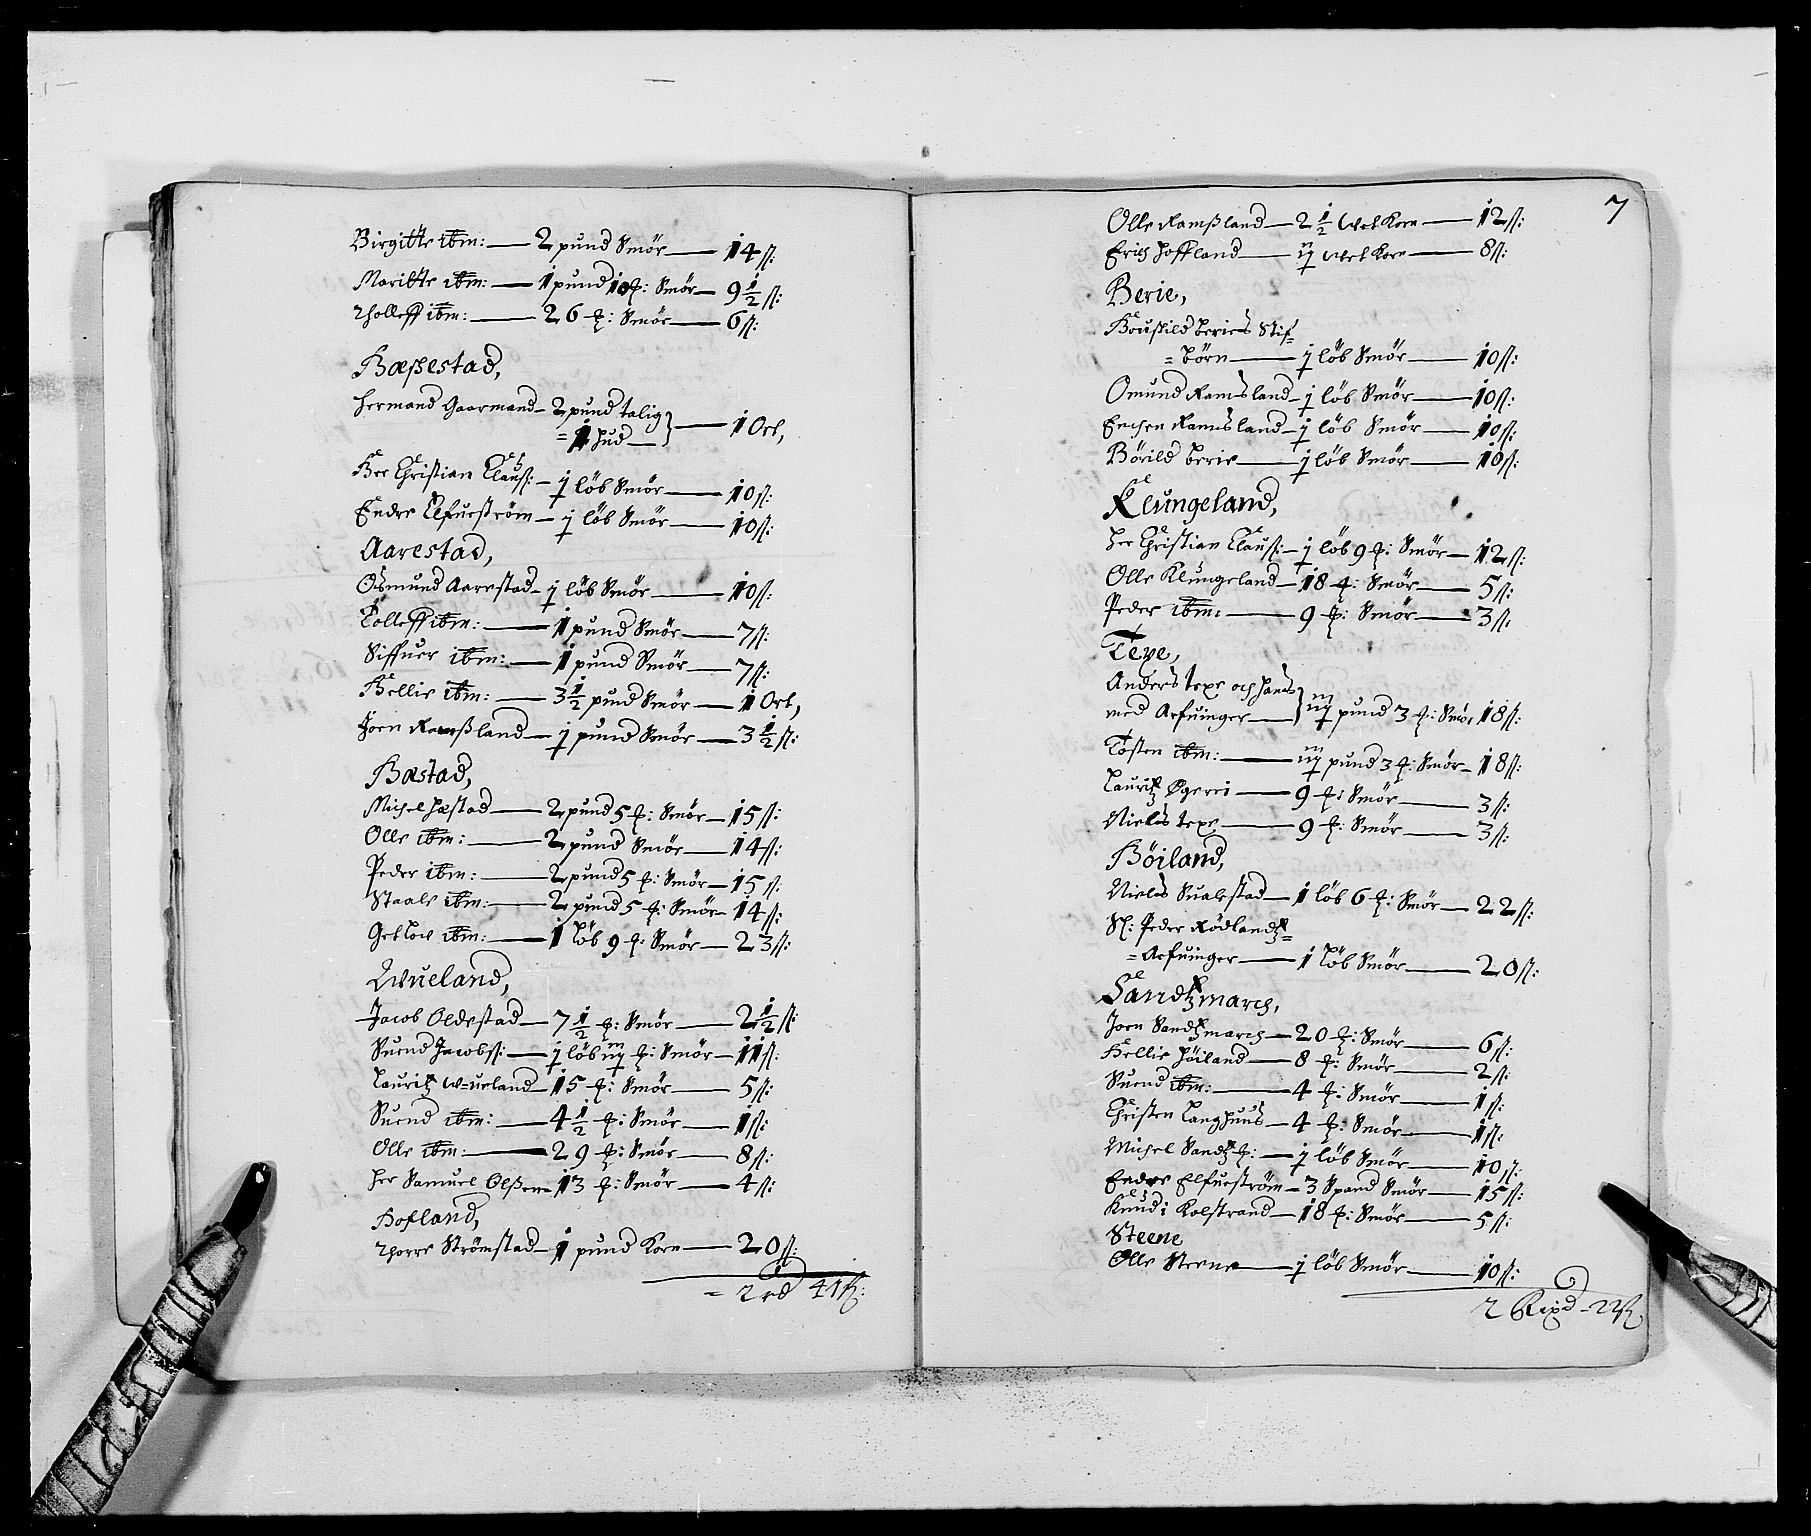 Birgitte ibm: — 2 pund Smör — 14 ß:
Maritte ibm: — 1 pund 10 ℔: Smör — 9 1/2 ß:
Tholleff ibm: — 26 ℔: Smör — 6 ß:
Hæßestad,
Hermand Gaarmand — 2 pund talig
= 1 Hud — } — 1 Ort,
Her Christian Clauß: — j löb Smör — 10 ß:
Endre Elfueström — j löb Smör — 10 ß:
Aarestad,
Osmund Aarestad — j löb Smör — 10 ß:
Tolleff ibm: — 1 pund Smör — 7 ß:
Siffuer ibm: — 1 pund Smör — 7 ß:
Hellie ibm: — 3 1/2 pund Smör — 1 Ort,
Jorn Ramßland — j pund Smör — 3 1/2 ß:
Hæstad,
Michel Hæstad — 2 pund 5 ℔: Smör — 15 ß:
Olle ibm: — 2 pund Smör — 14 ß:
Peder ibm: — 2 pund 5 ℔: Smör — 15 ß:
Staale ibm: — 2 pund 5 ℔: Smör — 14 ß:
Getlov ibm: — 1 Löb 9 ℔: Smör — 23 ß:
Wueland,
Jacob Oldestad — 7 1/2 ℔: Smör — 2 1/2 ß:
Suend Jacobß: — j löb iij ℔: Smör — 11 ß:
Lauritz Wueland — 15 ℔: Smör — 5 ß:
Suend ibm: — 4 1/2 ℔: Smör — 1 ß:
Olle ibm: — 29 ℔: Smör — 8 ß:
Her Samuel Olßen — 13 ℔: Smör — 4 ß:
Hofland,
Thorre Strömstad — 1 pund Korn — 20 ß:
= 2 rd 41 ß:
7
Olle Ramßland — 2 1/2 Wet Korn — 12 ß:
Erich Hoffland — ij Wet Korn — 8 ß:
Berie,
Boußild Beries Stif=
=börn — j löb Smör — 10 ß:
Omund Ramsland — j löb Smör — 10 ß:
Enchen Ramsland — j löb Smör — 10 ß:
Börild Berie — j löb Smör — 10 ß:
Klungeland,
Her Christian Clauß: — j löb 9 ℔: Smör — 12 ß:
Olle Klungeland — 18 ℔: Smör — 5 ß:
Peder ibm: — 9 ℔: Smör — 3 ß:
Texe,
Anders texe och hans
med Arfuinger — } iij pund 3 ℔: Smör 18 ß:
Tosten ibm: — iij pund 3 ℔: Smör — 18 ß:
Lauritz Øgerei — 9 ℔: Smör — 3 ß:
Niels texe — 9 ℔: Smör — 3 ß:
Höiland,
Niels Sualestad — 1 löb 6 ℔: Smör — 22 ß:
Sl: Peder Rödlandtz=
=Arfuinger — 1 Löb Smör — 20 ß:
Sandtzmarch,
Jorn Sandtzmarch — 20 ℔: Smör — 6 ß:
Hellie Höiland — 8 ℔: Smör — 2 ß:
Suend ibm: — 4 ℔: Smör — 1 ß:
Christen Langhuus — 4 ℔: Smör — 1 ß:
Michel Sandtz℔: — j löb Smör — 10 ß:
Endre Elfueström — 3 Spand Smör — 15 ß:
Knud i Kolstrand — 18 ℔: Smör — 5 ß:
Steene
Olle Steene — j löb Smör — 10 ß:
2 Rixd — 22 ß